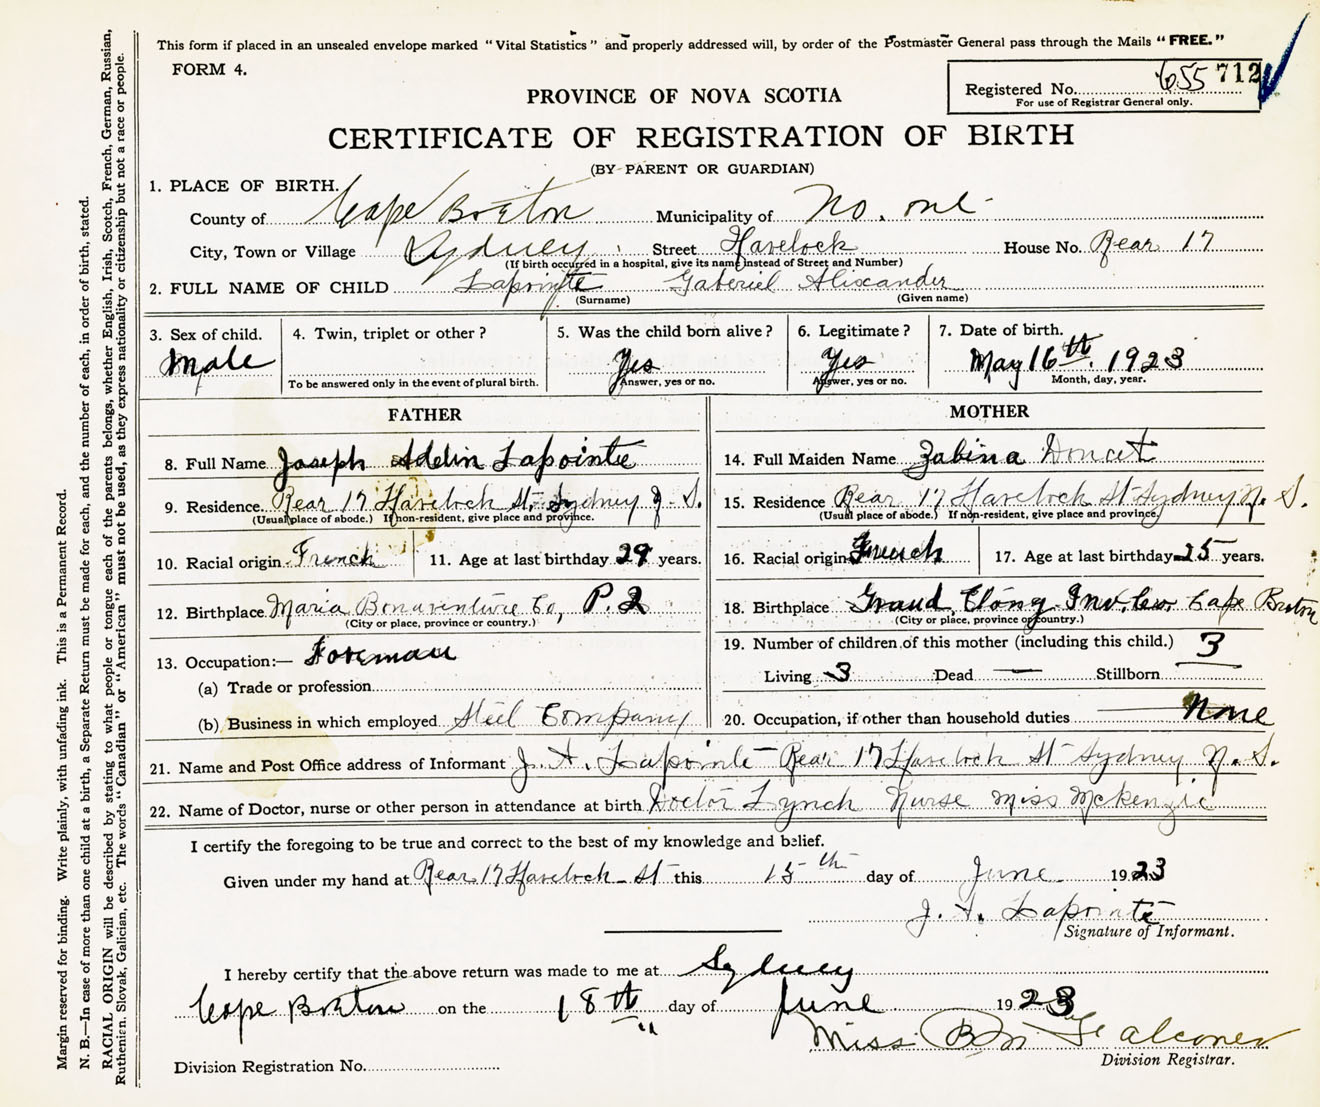 This form if placed in an unsealed envelope marked "Vital Statistics" and properly addressed will, by order of the Postmaster General pass through the Mails "FREE."
FORM 4.
Registered No. 655 712
For use of Registrar General only.
PROVINCE OF NOVA SCOTIA
CERTIFICATE OF REGISTRATION OF BIRTH
(BY PARENT OR GUARDIAN)
1. PLACE OF BIRTH.
County of Cape Breton Municipality of No. one
City, Town or Village Sydney Street Havelock House No. Rear 17
(If birth occurred in a hospital, give its name instead of Street and Number)
2. FULL NAME OF CHILD Lapointe Gaberiel Alixander
(Surname) (Given name)
3. Sex of child. 4. Twin, triplet or other? 5. Was the child born alive? 6. Legitimate? 7. Date of birth.
Male Yes Yes May 16th. 1923
To be answered only in the event of plural birth. Answer, yes or no. Answer, yes or no. Month, day, year.
FATHER
8. Full Name Joseph Lapointe
9. Residence. Rear 17 Havelock St. Sydney S.
(Usual place of abode.) If non-resident, give place and province.
10. Racial origin French 11. Age at last birthday 29 years.
12. Birthplace Maria Bonaventure Co, P. 2
(City or place, province or country.)
13. Occupation:— Foreman
(a) Trade or profession
(b) Business in which employed Steel Company
MOTHER
14. Full Maiden Name Zabina Doucet
15. Residence Rear 17 Havelock St Sydney N. S.
(Usual place of abode.) If non-resident, give place and province.
16. Racial origin French 17. Age at last birthday 25 years.
18. Birthplace Grand Etang Inv. Co. Cape Breton
(City or place, province or country.)
19. Number of children of this mother (including this child.) 3
Living 3 Dead — Stillborn
20. Occupation, if other than household duties None
21. Name and Post Office address of Informant J. A. Lapointe Rear 17 Havelock St Sydney N. S.
22. Name of Doctor, nurse or other person in attendance at birth Doctor Lynch Nurse Miss McKenzie
I certify the foregoing to be true and correct to the best of my knowledge and belief.
Given under my hand at Rear 17 Havelock St this 15th day of June 1923
J. A. Lapointe
Signature of Informant.
I hereby certify that the above return was made to me at Sydney
Cape Breton on the 18th day of June 1923
Miss B M Falconer
Division Registrar.
Division Registration No.
Margin reserved for binding. Write plainly, with unfading ink. This is a Permanent Record.
N. B.—In case of more than one child at a birth, a Separate Return must be made for each, and the number of each, in order of birth, stated.
RACIAL ORIGIN will be described by stating to what people or tongue each of the parents belongs, whether English, Irish, Scotch, French, German, Russian,
Ruthenian, Slovak, Galician, etc. The words "Canadian" or "American" must not be used, as they express nationality or citizenship but not a race or people.